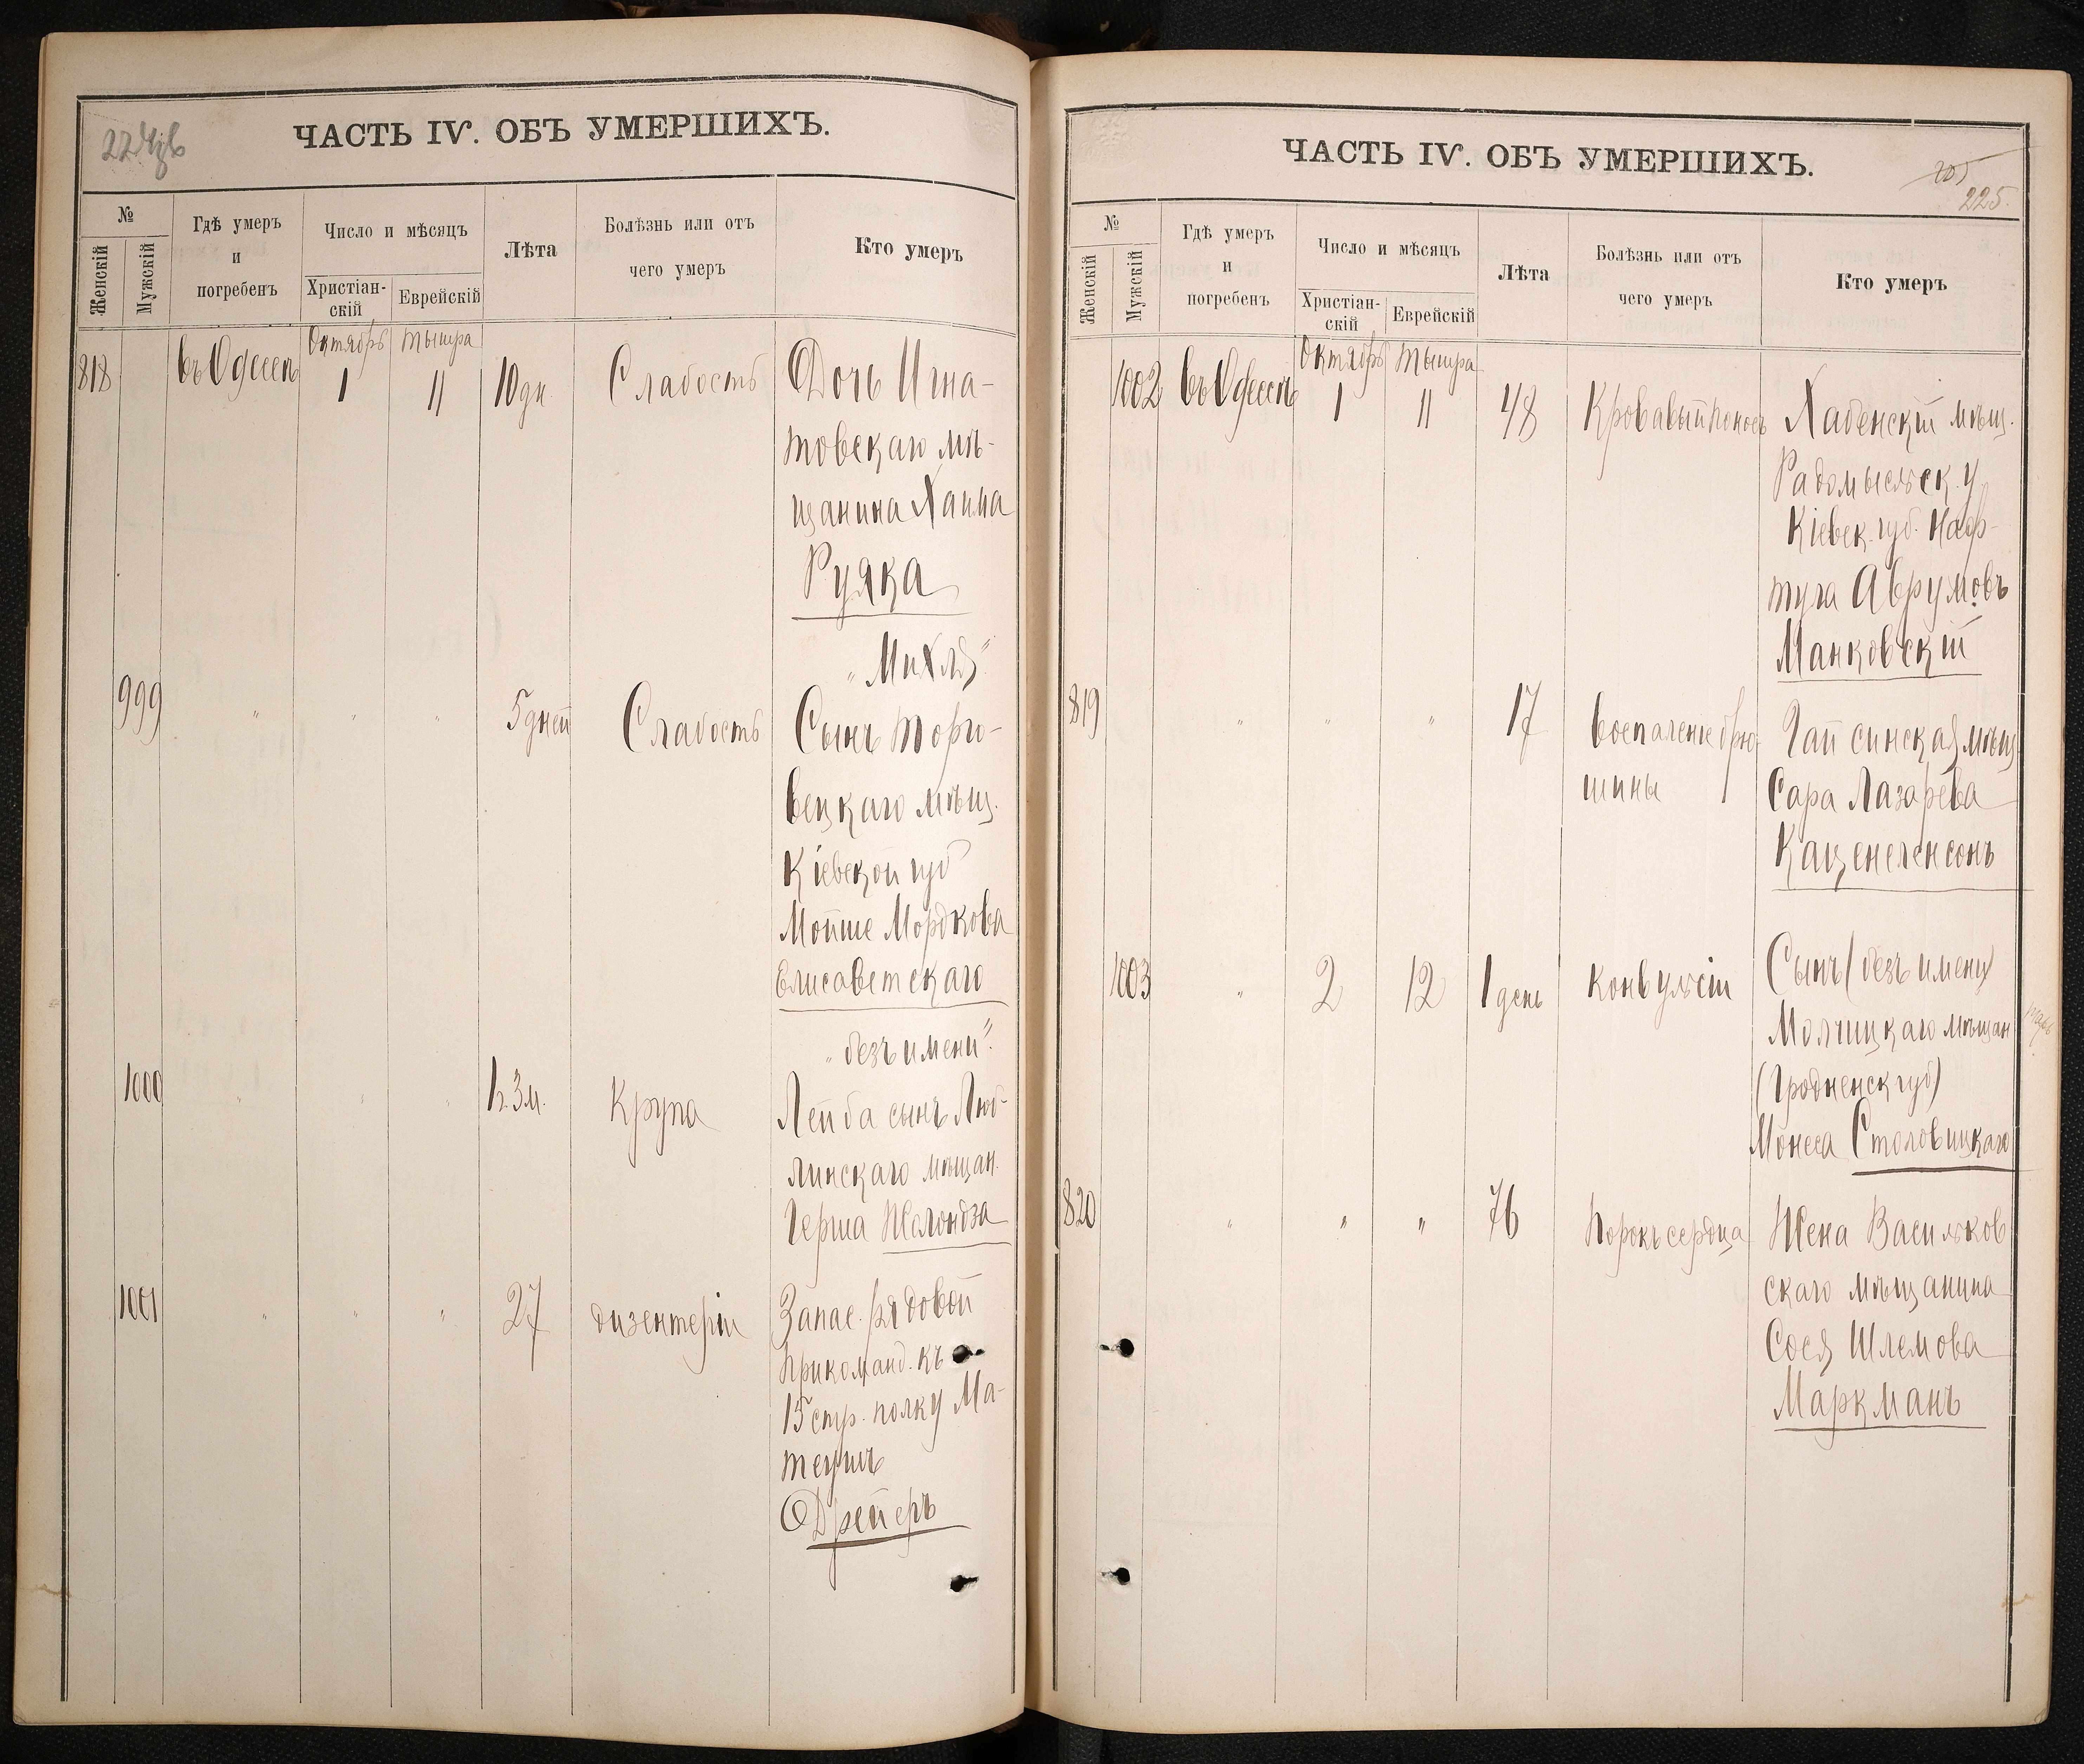 224об
ЧАСТЬ IV. ОБЪ УМЕРШИХЪ.
№
Женскій
Мужскій
Гдѣ умеръ
и
погребенъ
Число и мѣсяцъ
Христіан-
скій
Еврейскій
Лѣта
Болѣзнь или отъ
чего умеръ
Кто умеръ
Октябрь Тышра
818 въ Одессѣ 1 11 10 дн. Слабость Дочь Игна-
товскаго мѣ-
щанина Хаима
Руяка
„Михля"
999 „ „ „ 5 дней Слабость Сынъ Торго-
вецкаго мѣщ.
Кіевской губ
Мойше Мордкова
Елисаветскаго
„безъ имени".
1000 „ „ „ 1 г. 3 м. Крупа Лейба сынъ Люб-
линскаго мѣщан.
Герша Желондза
1001 „ „ „ 27 дизентеріи Запас. рядовой
прикоманд. къ
15 стр. полку Ма-
теушъ
Дрейеръ
ЧАСТЬ IV. ОБЪ УМЕРШИХЪ.
205
225.
№
Женскій
Мужскій
Гдѣ умеръ
и
погребенъ
Число и мѣсяцъ
Христіан-
скій
Еврейскій
Лѣта
Болѣзнь или отъ
чего умеръ
Кто умеръ
Октябрь Тышра
1002 въ Одессѣ 1 11 48 Кровавый поносъ Хабенскій мѣщ.
Радомысльск. у.
Кіевск. губ. Наф-
тула Аврумовъ
Манковскій
819 „ „ „ 17 Воспаленіе брю-
шины
Гайсинская мѣщ
Сара Лазарева
Каценеленсонъ
1003 „ 2 12 1 день Конвульсіи Сынъ (безъ имени)
Молчицкаго мѣщан
(Гродненск губ)
Монеса Столовицкаго
820 „ „ „ 76 Порокъ сердца Жена Васильков
скаго мѣщанина
Сося Шлемова
Маркманъ